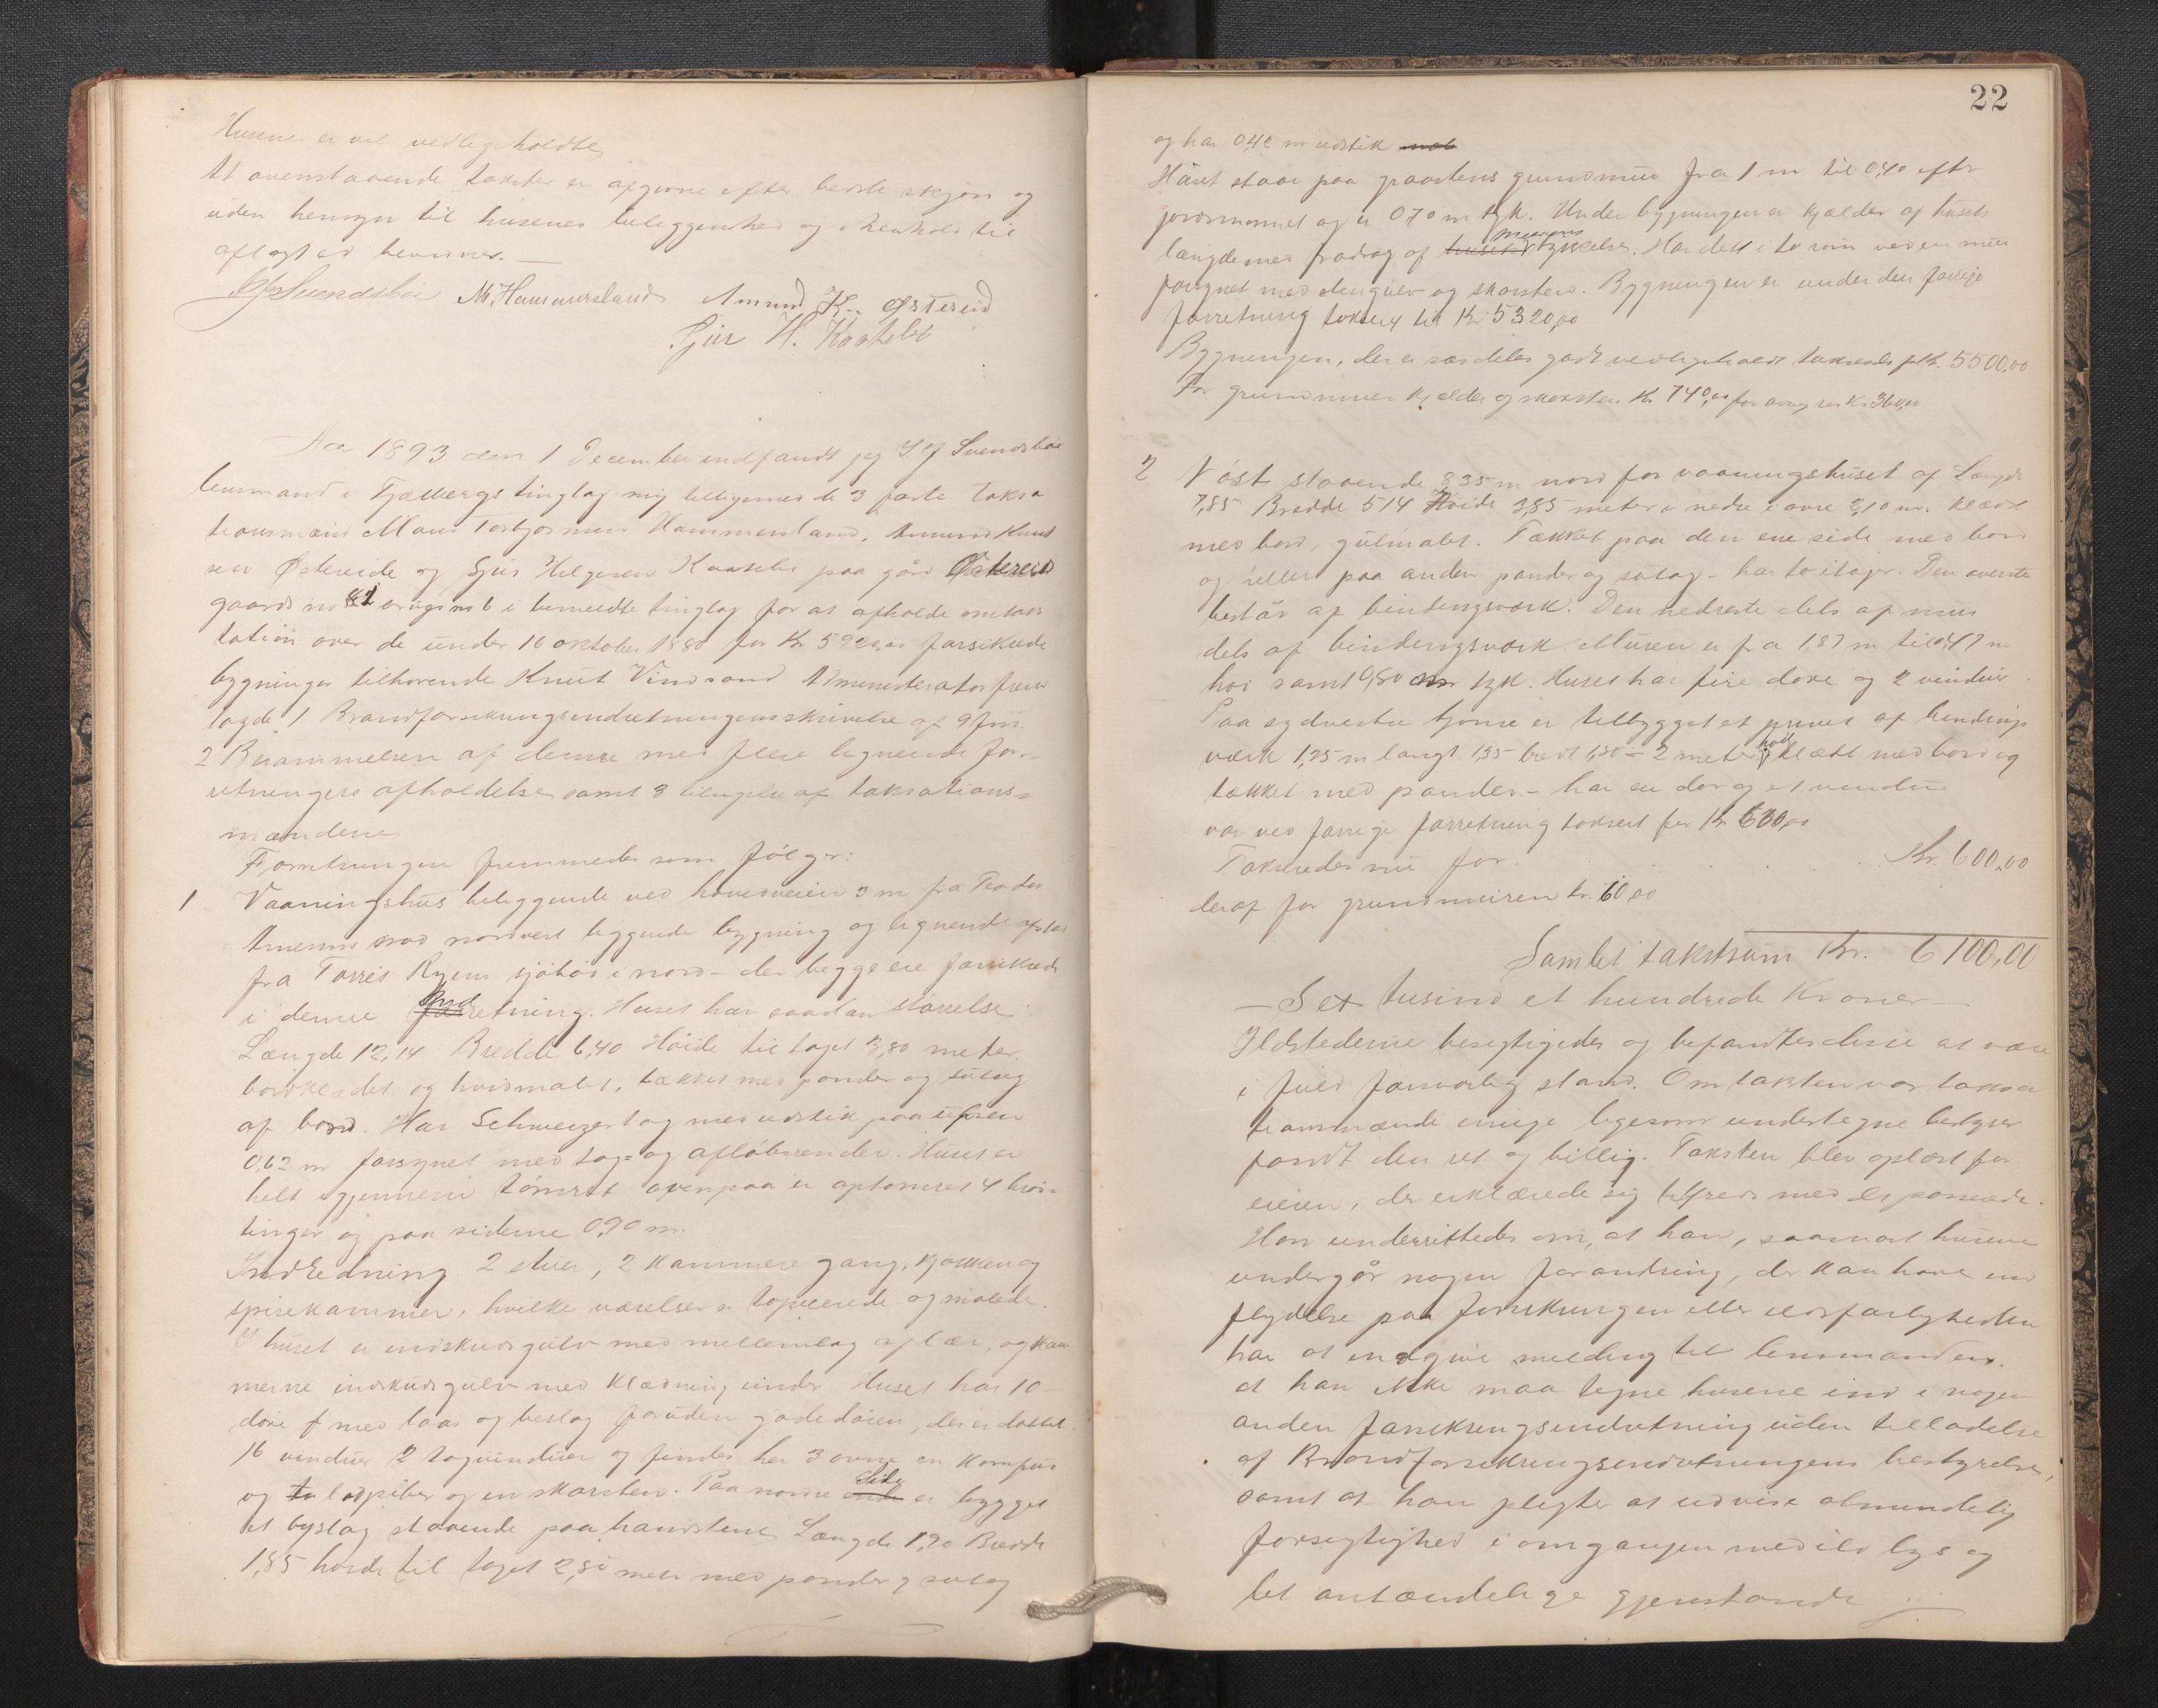 Husene er vel vedligeholdte
At ovenstaaende takster er afgivne efter bedste skjøn og
uden hensyn til husenes beliggenhed og i henhold til
aflagt ed bevidnes. —
Svendsbøe M. Hammersland Amund K. Østereid
Sjur H. Kaatebø
Aar 1893 den 1 December indfandt jeg Svendsbøe
lensmand i Fjælbergs tinglag mig tilligemed de 3 faste taksa
tionsmænd Mons Torbjørnsen Hammersland, Amund Knut
sen Østereide og Sjur Helgesen Kaatebø paa gård Østereid
gaards no brugs no 6 i bemeldte tinglag for at afholde omtaks
tation over de under 16 oktober 1880 for Kr 5920,00 forsikrede
bygninger tilhørende Knut Vindsand Administrator frem
lagde 1 Brandforsikringsindretningens skrivelse af 9 Jun.
2 Berammelsen af denne med flere lignende for-
retningers afholdelse samt 3 af taksations-
mændene
Forretningen fremmedes som følger:
1 Vaaningshus beliggende ved hovedveien 3 m fra
nordvest liggende bygning og lignende afstand
fra Torris Ryens sjøbod i nord - der begge ere forsikrede
i denne indretning. Huset har saadan størrelse:
Længde 12,14 Bredde 6,40 Høide til taget 3,80 meter.
bordklædet og hvidmalet, tækket med pander og sutag
af bord. Har Schweizertag med udstik paa ufsen
0,62 m forsynet med tag- og afløbsrender. Huset er
helt igjennem tømret ovenpaa er optømret 4 hvør-
tinger og paa siderne 0,90 m.
Indredning 2 stuer, 2 kammere gang, kjøkken og
spisekammer, hvilke værelser er tapeserede og malede.
I huset er indskudsgulv med mellemlag af ler, og kam
merne indskudsgulv med klædning under. Huset har 10
døre med laas og beslag foruden gadedøren, der er dobbelt.
16 vinduer 2 tagvinduer og findes her 3 ovne en komfur
og to lodpiber og en skorsten. Paa nordre side er bygget
et byslag staaende paa Længde 1,90 Bredde
1,85 høide til taget 2,80 meter med pander og sutag
22
og har 0,40 m udstik
Huset staar paa graastens grundmur fra 1 m til 0,40 efter
jordsmonnet og er 0,70 m tyk. Under bygningen er kjælder af husets
længde med fradrag af murens tykkelse. Har delt i to rum ved en mur
forsynet med stengulv og skorsten. Bygningen er under den forrige
forretning takseret til Kr 5320,00
Bygningen, der er særdeles godt vedligeholdt takseredes for Kr. 5500,00
For grundmuren kjælder og skorsten Kr 740,00 for Kr 360,00
2 Nøst staaende 8,35 m nord for vaaningshuset af Længde
7,85 Bredde 514 Høide 3,85 meter i nedre i øvre 2,10 m. klædt
med bord, gulmalet. Tækket paa den ene side med bord
og heller paa anden pander og sutag - har to etager. Den øverste
består af bindingsværk. Den nederste dels af mur
dels af bindingsværk. Muren er fra 1,87 m til 0,47 m
høi samt 0,80 m tyk. Huset har fire døre og 2 vinduer.
Paa sydvestre hjørne er tilbygget et privet af bindings
værk 1,25 m langt 1,35 bredt 1,50 - 2 meter høit klædt med bord og
tækket med pander. - har en dør og et vindu
var ved forrige forretning takseret for Kr 600,00
Takseredes nu for . . . . . Kr. 600,00
deraf for grundmuren kr. 60,00
Samlet takstsum Kr. 6100,00
— Sex tusind et hundrede Kroner —
Ildstederne besigtigedes og befandtes disse at være
i fuld forsvarlig stand. Om taksten var taksa
tionsmændene enige ligesom undertegne bestyrer
fandt den ret og billig. Taksten blev oplæst for
eieren, der erklærede sig tilfreds med det passerede.
Han underrettedes om, at han, saasnart husene
undergår nogen forandring, der kan have ind
flydelse paa forsikringen eller ildsfarligheden
har at indgive melding til lensmanden.
at han ikke maa tegne husene ind i nogen
anden forsikringsindretning uden tilladelse
af Brandforsikringsindretningens bestyrelse,
samt at han pligter at udvise almindelig
forsigtighed i omgangen med ild lys og
let antændelige gjenstande